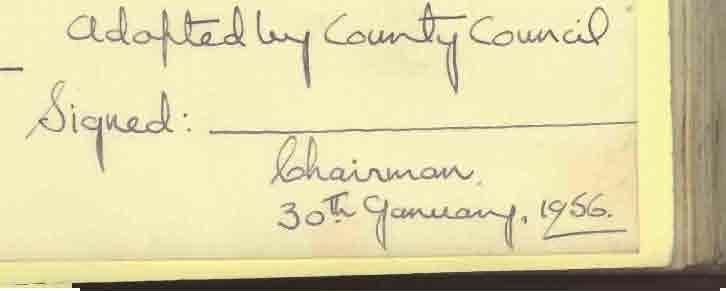 Adopted by County Council
Signed:
Chairman.
30th January, 1956.